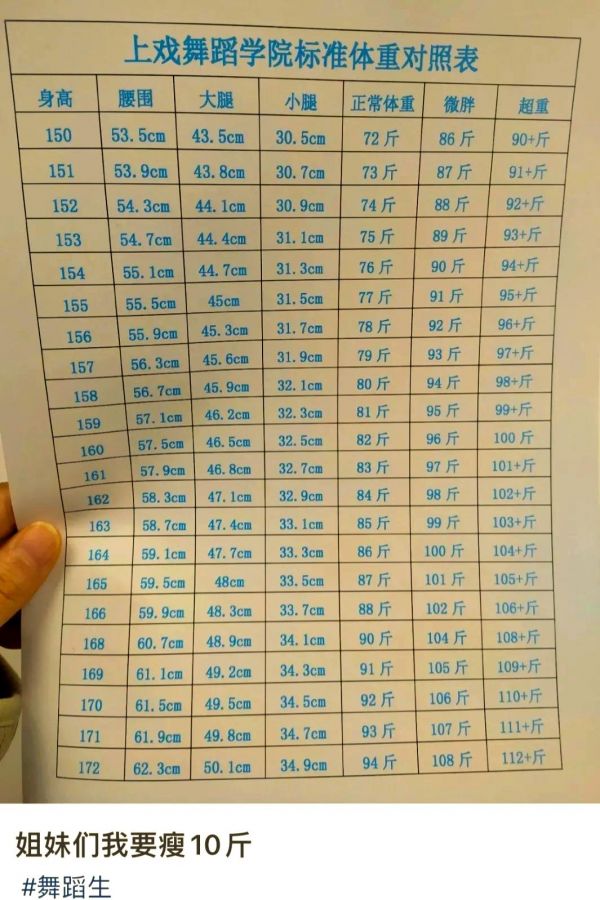 上戏舞蹈学院标准体重对照表
身高 腰围 大腿 小腿 正常体重 微胖 超重
150 53.5cm 43.5cm 30.5cm 72斤 86斤 90+斤
151 53.9cm 43.8cm 30.7cm 73斤 87斤 91+斤
152 54.3cm 44.1cm 30.9cm 74斤 88斤 92+斤
153 54.7cm 44.4cm 31.1cm 75斤 89斤 93+斤
154 55.1cm 44.7cm 31.3cm 76斤 90斤 94+斤
155 55.5cm 45cm 31.5cm 77斤 91斤 95+斤
156 55.9cm 45.3cm 31.7cm 78斤 92斤 96+斤
157 56.3cm 45.6cm 31.9cm 79斤 93斤 97+斤
158 56.7cm 45.9cm 32.1cm 80斤 94斤 98+斤
159 57.1cm 46.2cm 32.3cm 81斤 95斤 99+斤
160 57.5cm 46.5cm 32.5cm 82斤 96斤 100斤
161 57.9cm 46.8cm 32.7cm 83斤 97斤 101+斤
162 58.3cm 47.1cm 32.9cm 84斤 98斤 102+斤
163 58.7cm 47.4cm 33.1cm 85斤 99斤 103+斤
164 59.1cm 47.7cm 33.3cm 86斤 100斤 104+斤
165 59.5cm 48cm 33.5cm 87斤 101斤 105+斤
166 59.9cm 48.3cm 33.7cm 88斤 102斤 106+斤
168 60.7cm 48.9cm 34.1cm 90斤 104斤 108+斤
169 61.1cm 49.2cm 34.3cm 91斤 105斤 109+斤
170 61.5cm 49.5cm 34.5cm 92斤 106斤 110+斤
171 61.9cm 49.8cm 34.7cm 93斤 107斤 111+斤
172 62.3cm 50.1cm 34.9cm 94斤 108斤 112+斤
姐妹们我要瘦10斤
#舞蹈生